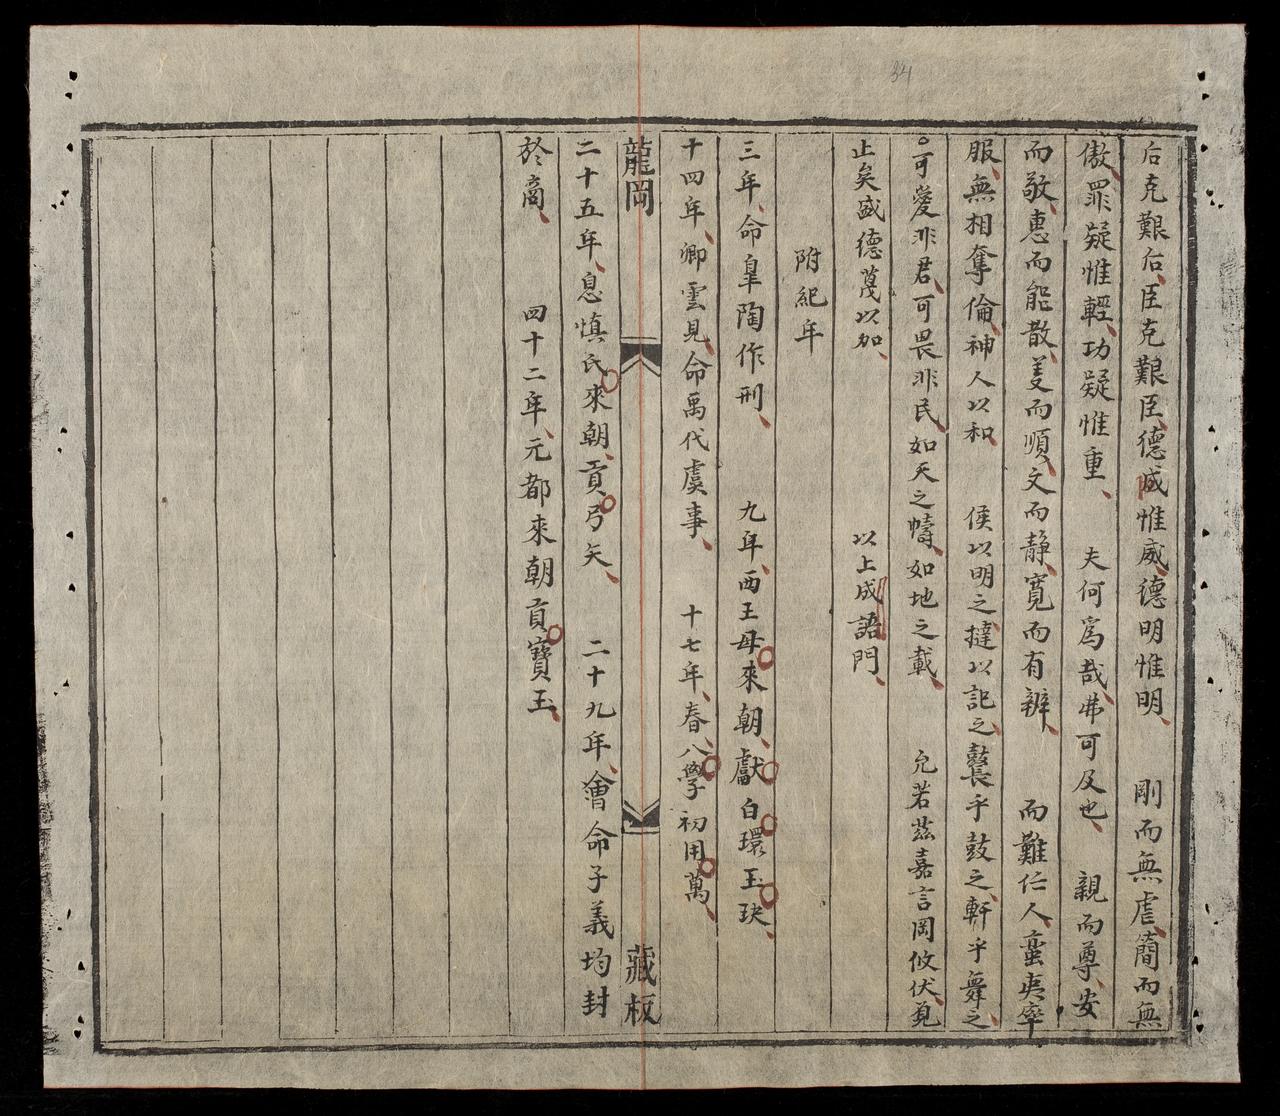 34
后克艱后、臣克艱臣、德威惟威、德明惟明、 剛而無虐、簡而無
傲、罪疑惟輕、功疑惟重、 夫何為哉、弗可及也、 親而尊、安
而敬、惠而能散、姜而順、文而靜、寬而有辨、 而難任人、蛮夷率
服、無相奪倫、神人以和、 侯以明之、撻以記之、鼚乎鼓之、軒乎舞之、
可愛非君、可畏非民、如天之幬、如地之載、 允若茲嘉言罔攸伏、覓
止矣盛德蔑以加、 以上成語門、
附紀年
三年、命皐陶作刑、 九年、西王母來朝、獻白環玉玦、
十四年、卿雲見、命禹代虞事、 十七年、春、入學初用萬、
龍岡 藏板
二十五年、息慎氏來朝、貢弓矢、 二十九年、會命子義均封
於商、 四十二年、元都來朝貢寶玉、